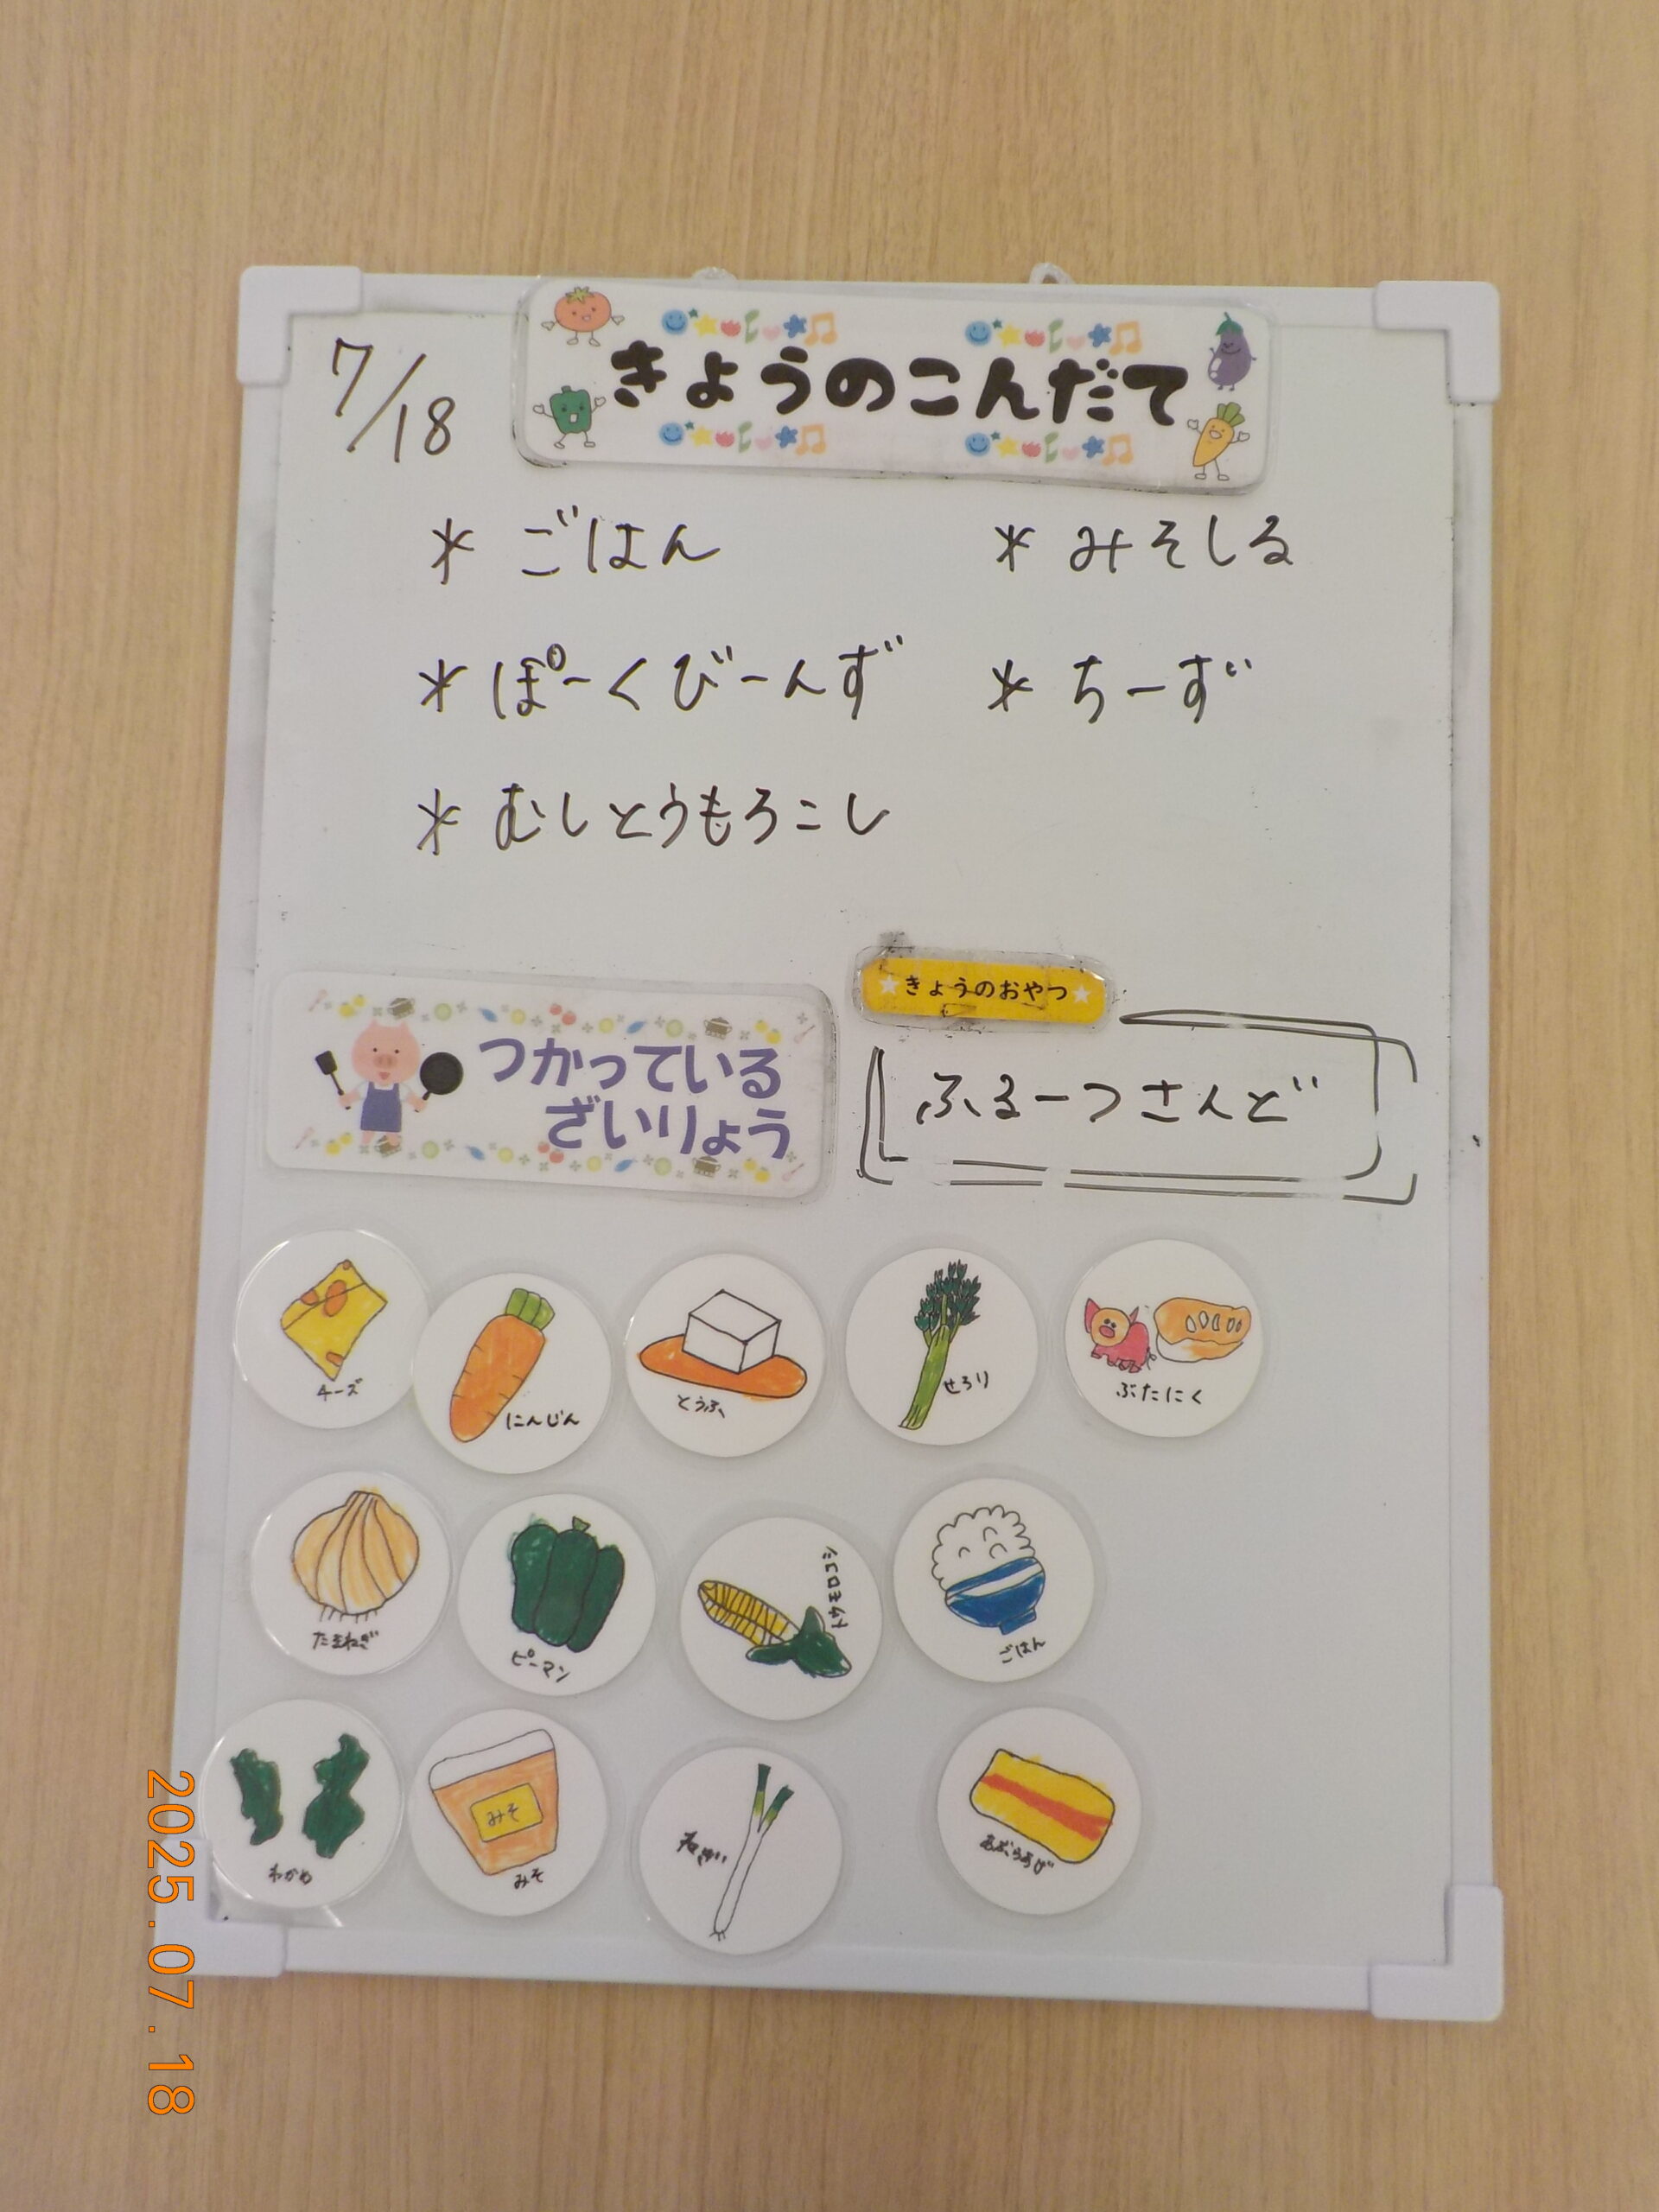 7/18
きょうのこんだて
* ごはん
* みそしる
* ぽーくびーんず
* ちーず
* むしとうもろこし
きょうのおやつ
ふるーつさんど
つかっている
ざいりょう
チーズ
にんじん
とうふ
せろり
ぶたにく
たまねぎ
ピーマン
トウモロコシ
ごはん
わかめ
みそ
みそ
ねぎ
あぶらあげ
2025.07.18